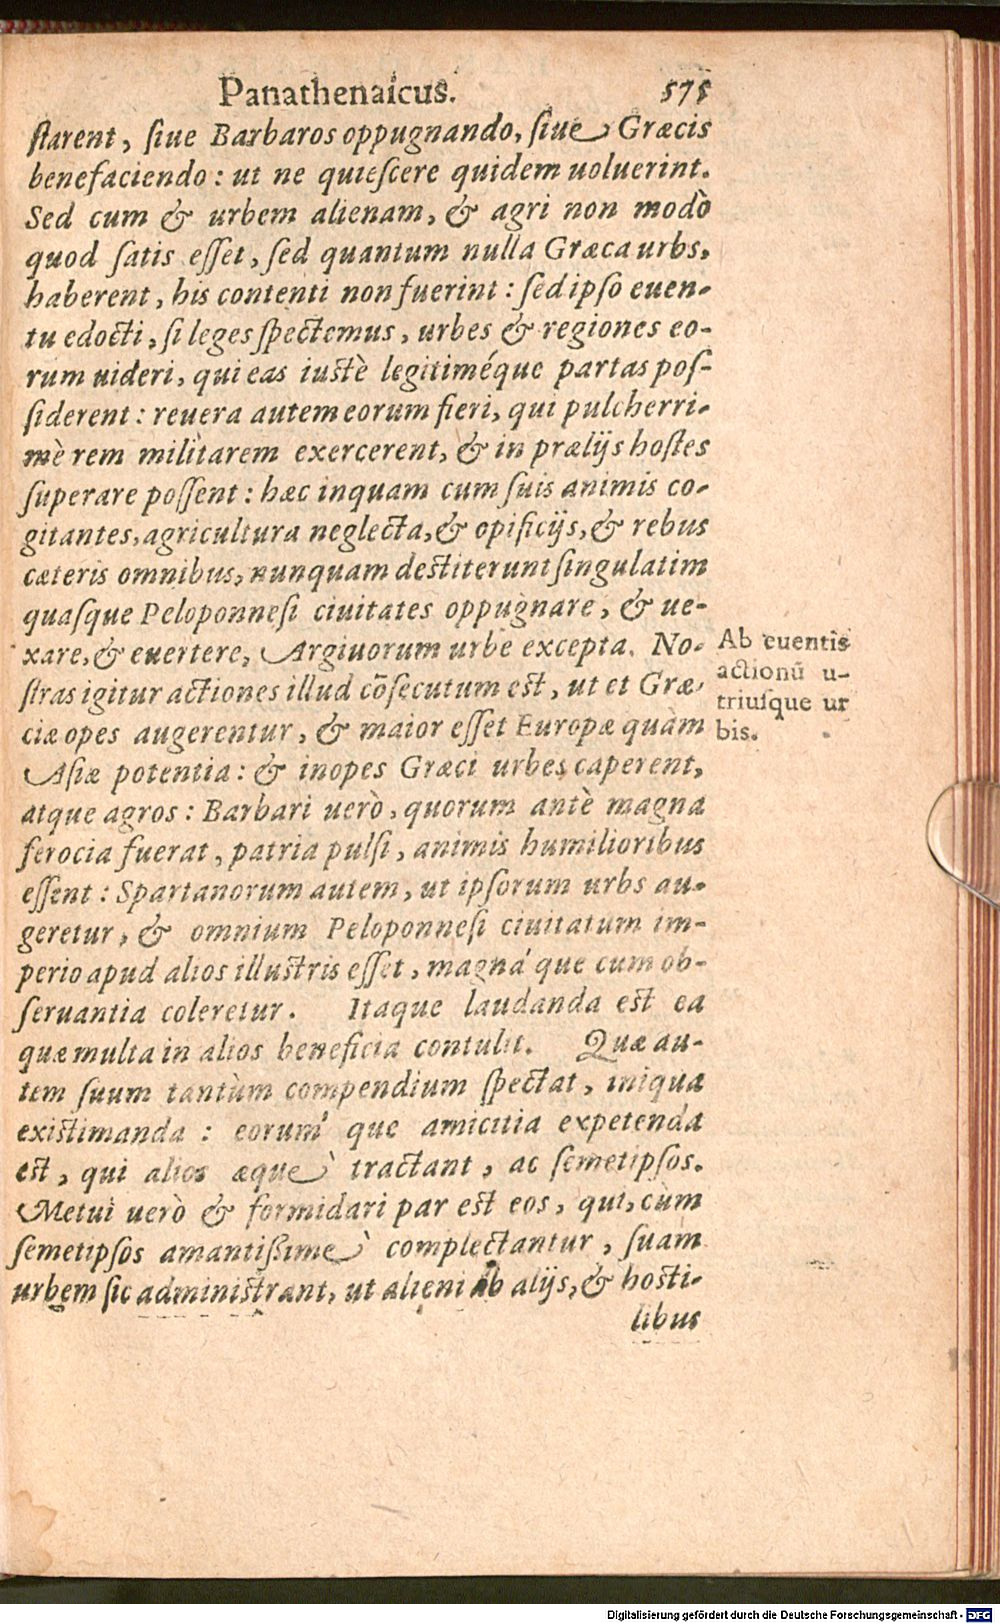 Panathenaicus. 575
starent, siue Barbaros oppugnando, siue Græcis
benefaciendo: ut ne quiescere quidem uoluerint.
Sed cum & urbem alienam, & agri non modò
quod satis esset, sed quantum nulla Græca urbs,
haberent, his contenti non fuerint: sed ipso euen-
tu edocti, si leges spectemus, urbes & regiones eo-
rum uideri, qui eas iustè legitiméque partas pos-
siderent: reuera autem eorum fieri, qui pulcherri-
mè rem militarem exercerent, & in prælijs hostes
superare possent: hæc inquam cum suis animis co-
gitantes, agricultura neglecta, & opificijs, & rebus
cæteris omnibus, nunquam destiterunt singulatim
quasque Peloponnesi ciuitates oppugnare, & ue-
xare, & euertere, Argiuorum urbe excepta. No-
stras igitur actiones illud cõsecutum est, ut et Græ-
ciæ opes augerentur, & maior esset Europæ quàm
Asiæ potentia: & inopes Græci urbes caperent,
atque agros: Barbari uerò, quorum antè magna
ferocia fuerat, patria pulsi, animis humilioribus
essent: Spartanorum autem, ut ipsorum urbs au-
geretur, & omnium Peloponnesi ciuitatum im-
perio apud alios illustris esset, magná que cum ob-
seruantia coleretur. Itaque laudanda est ea
quæ multa in alios beneficia contulit. Quæ au-
tem suum tantùm compendium spectat, iniqua
existimanda: eorum´ que amicitia expetenda
est, qui alios æque` tractant, ac semetipsos.
Metui uerò & formidari par est eos, qui, cùm
semetipsos amantißime` complectantur, suam
urbem sic administrant, ut alieni ab alijs, & hosti-
libus
Ab euentis
actionũ u-
triusque ur
bis.
Digitalisierung gefördert durch die Deutsche Forschungsgemeinschaft - DFG